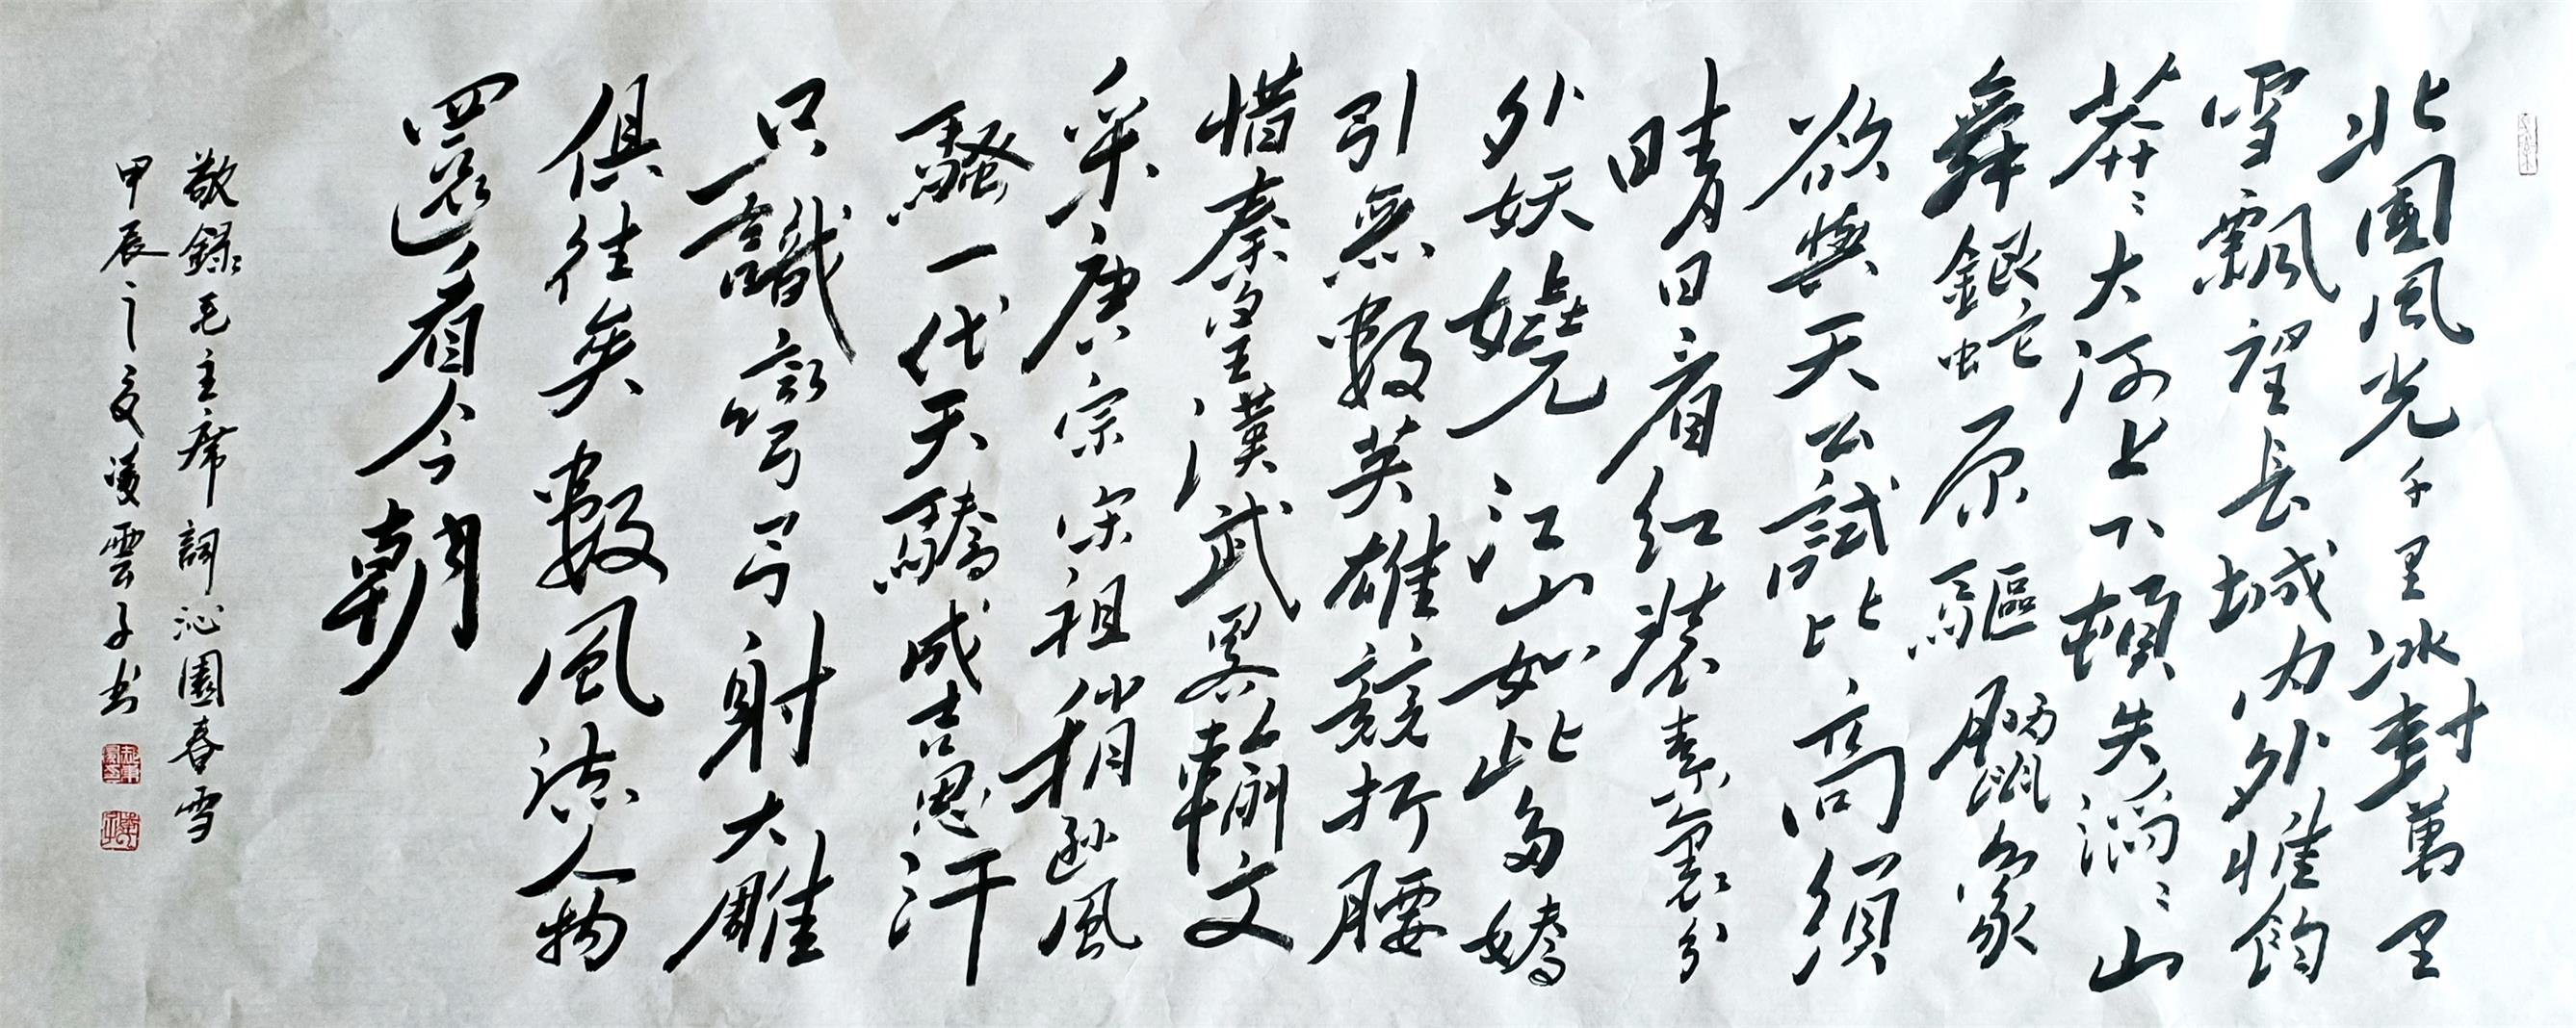 北國風光千里冰封萬里
雪飄望長城内外惟餘
莽〻大河上下頓失滔〻山
舞銀蛇原驅臘象
欲與天公試比高須
晴日看紅裝素裹分
外妖嬈江山如此多嬌
引無數英雄競折腰
惜秦皇漢武畧輸文
采唐宗宋祖稍遜風
騷一代天驕成吉思汗
只識彎弓射大雕
俱往矣數風流人物
還看今朝
敬錄毛主席詞沁園春雪
甲辰之夏凌雲子书